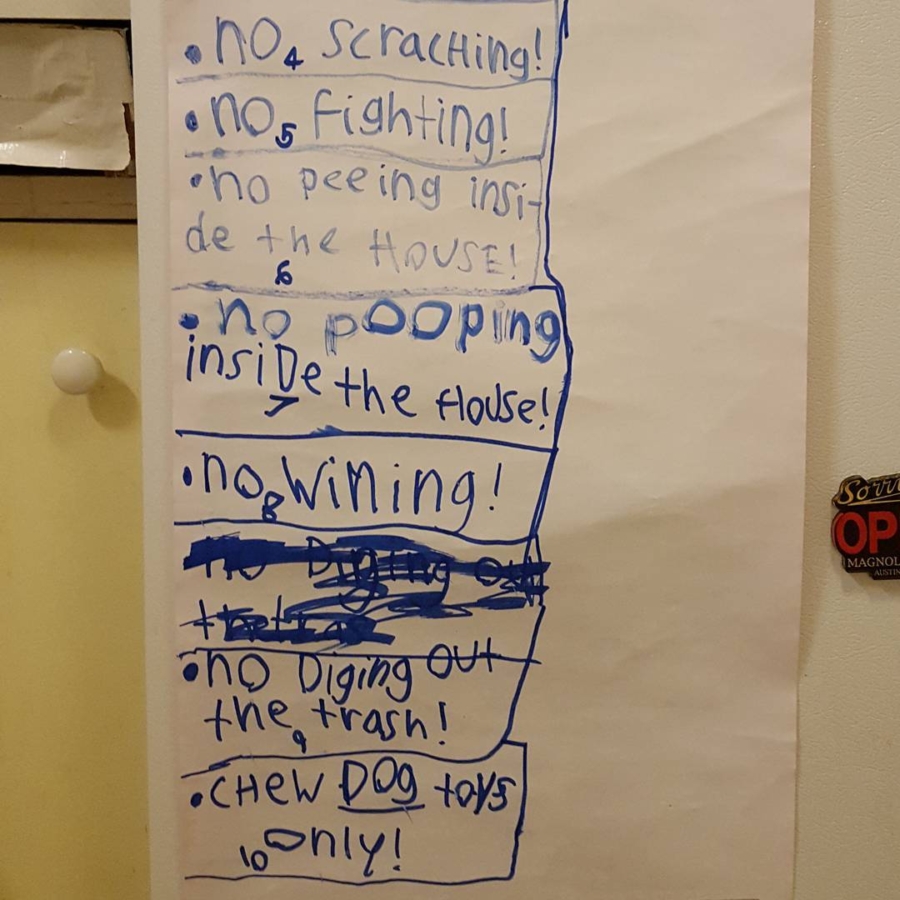 • no 4 scraCHing!
• no 5 fighting!
• no peeing insi-
de the HOUSE!
6
• no pooping
insiDe the House!
7
• no 8 wining!
no Diging out
the tras
• no Diging out
the 9 trash!
• CHEW DOg toys
10 only!
Sorry
OP
MAGNOL
AUSTIN